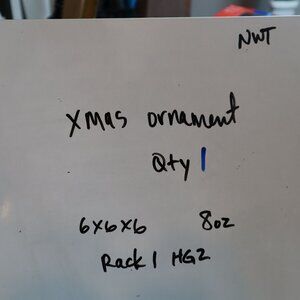 NWT
Xmas ornament
Qty 1
6x6x6 8oz
Rack 1 HG2